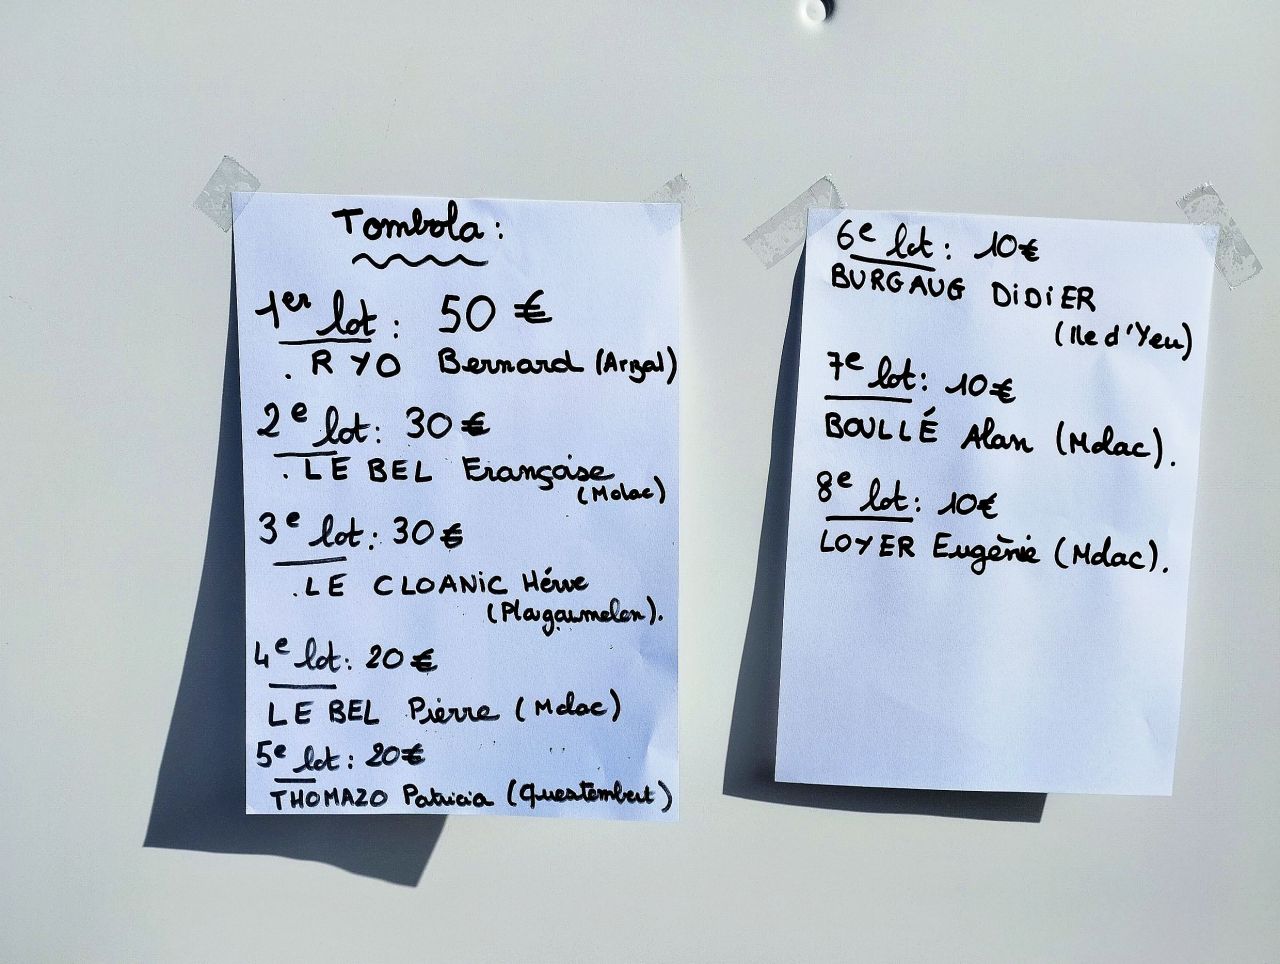 Tombola :
1er lot : 50 €
. RYO Bernard (Arzal)
2e lot : 30 €
. LE BEL Françoise
(Molac)
3e lot : 30 €
. LE CLOANIC Hérve
(Plougoumelen).
4e lot : 20 €
LE BEL Pierre (Molac)
5e lot : 20 €
THOMAZO Patricia (Questembert)
6e lot : 10 €
BURGAUG DiDiER
(Ile d'Yeu)
7e lot : 10 €
BOULLÉ Alan (Molac).
8e lot : 10 €
LOYER Eugènie (Molac).